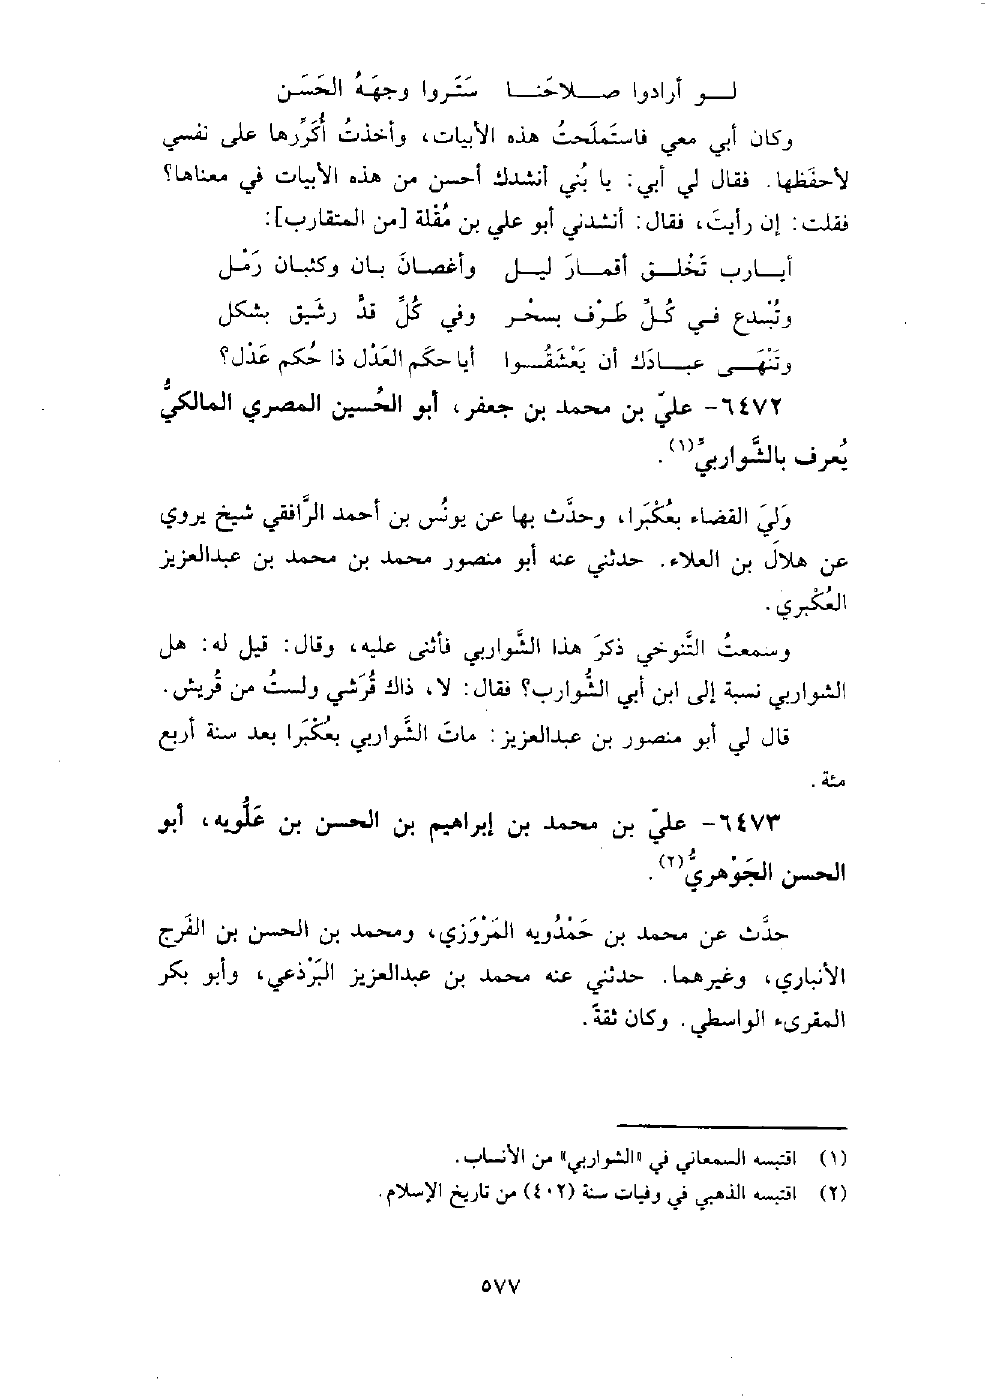 لـــو أرادوا صـــلاحَنـــا سَتَروا وجهَهُ الحَسَن
وكان أبي معي فاستملحتُ هذه الأبيات، وأخذتُ أُكَرِّرها على نفسي
لأحفَظها. فقال لي أبي: يا بُني أنشدك أحسن من هذه الأبيات في معناها؟
فقلت: إن رأيتَ، فقال: أنشدني أبو علي بن مُقْلة [من المتقارب]:
أيـــارب تَخْلـــق أقمـــارَ ليـــل وأغصانَ بان وكثبان رَمْل
وتُبْدع فـي كُـلِّ طَـرْف بسحْـر وفي كُلِّ قدٍّ رشَيق بشكل
وتَنْهَـــى عبـــادَك أن يَعْشَقُـــوا أيا حكَم العَدْل ذا حُكم عَدْل؟
٦٤٧٢- عليّ بن محمد بن جعفر، أبو الحُسين المصري المالكيُّ
يُعرف بالشَّواربيِّ(١).
وَليَ القضاء بعُكْبَرا، وحدَّث بها عن يونُس بن أحمد الرَّافقي شيخ يروي
عن هلال بن العلاء. حدثني عنه أبو منصور محمد بن محمد بن عبدالعزيز
العُكْبري.
وسمعتُ التَّنوخي ذكرَ هذا الشَّواربي فأثنى عليه، وقال: قيل له: هل
الشواربي نسبة إلى ابن أبي الشُّوارب؟ فقال: لا، ذاك قُرَشي ولستُ من قُريش.
قال لي أبو منصور بن عبدالعزيز: ماتَ الشَّواربي بعُكْبَرا بعد سنة أربع
مئة.
٦٤٧٣- عليّ بن محمد بن إبراهيم بن الحسن بن عَلُّويه، أبو
الحسن الجَوْهريُّ(٢).
حدَّث عن محمد بن حَمْدُويه المَرْوَزي، ومحمد بن الحسن بن الفَرج
الأنباري، وغيرهما. حدثني عنه محمد بن عبدالعزيز البَرْذعي، وأبو بكر
المقرىء الواسطي. وكان ثقةً.
(١) اقتبسه السمعاني في «الشواربي» من الأنساب.
(٢) اقتبسه الذهبي في وفيات سنة (٤٠٢) من تاريخ الإسلام.
٥٧٧